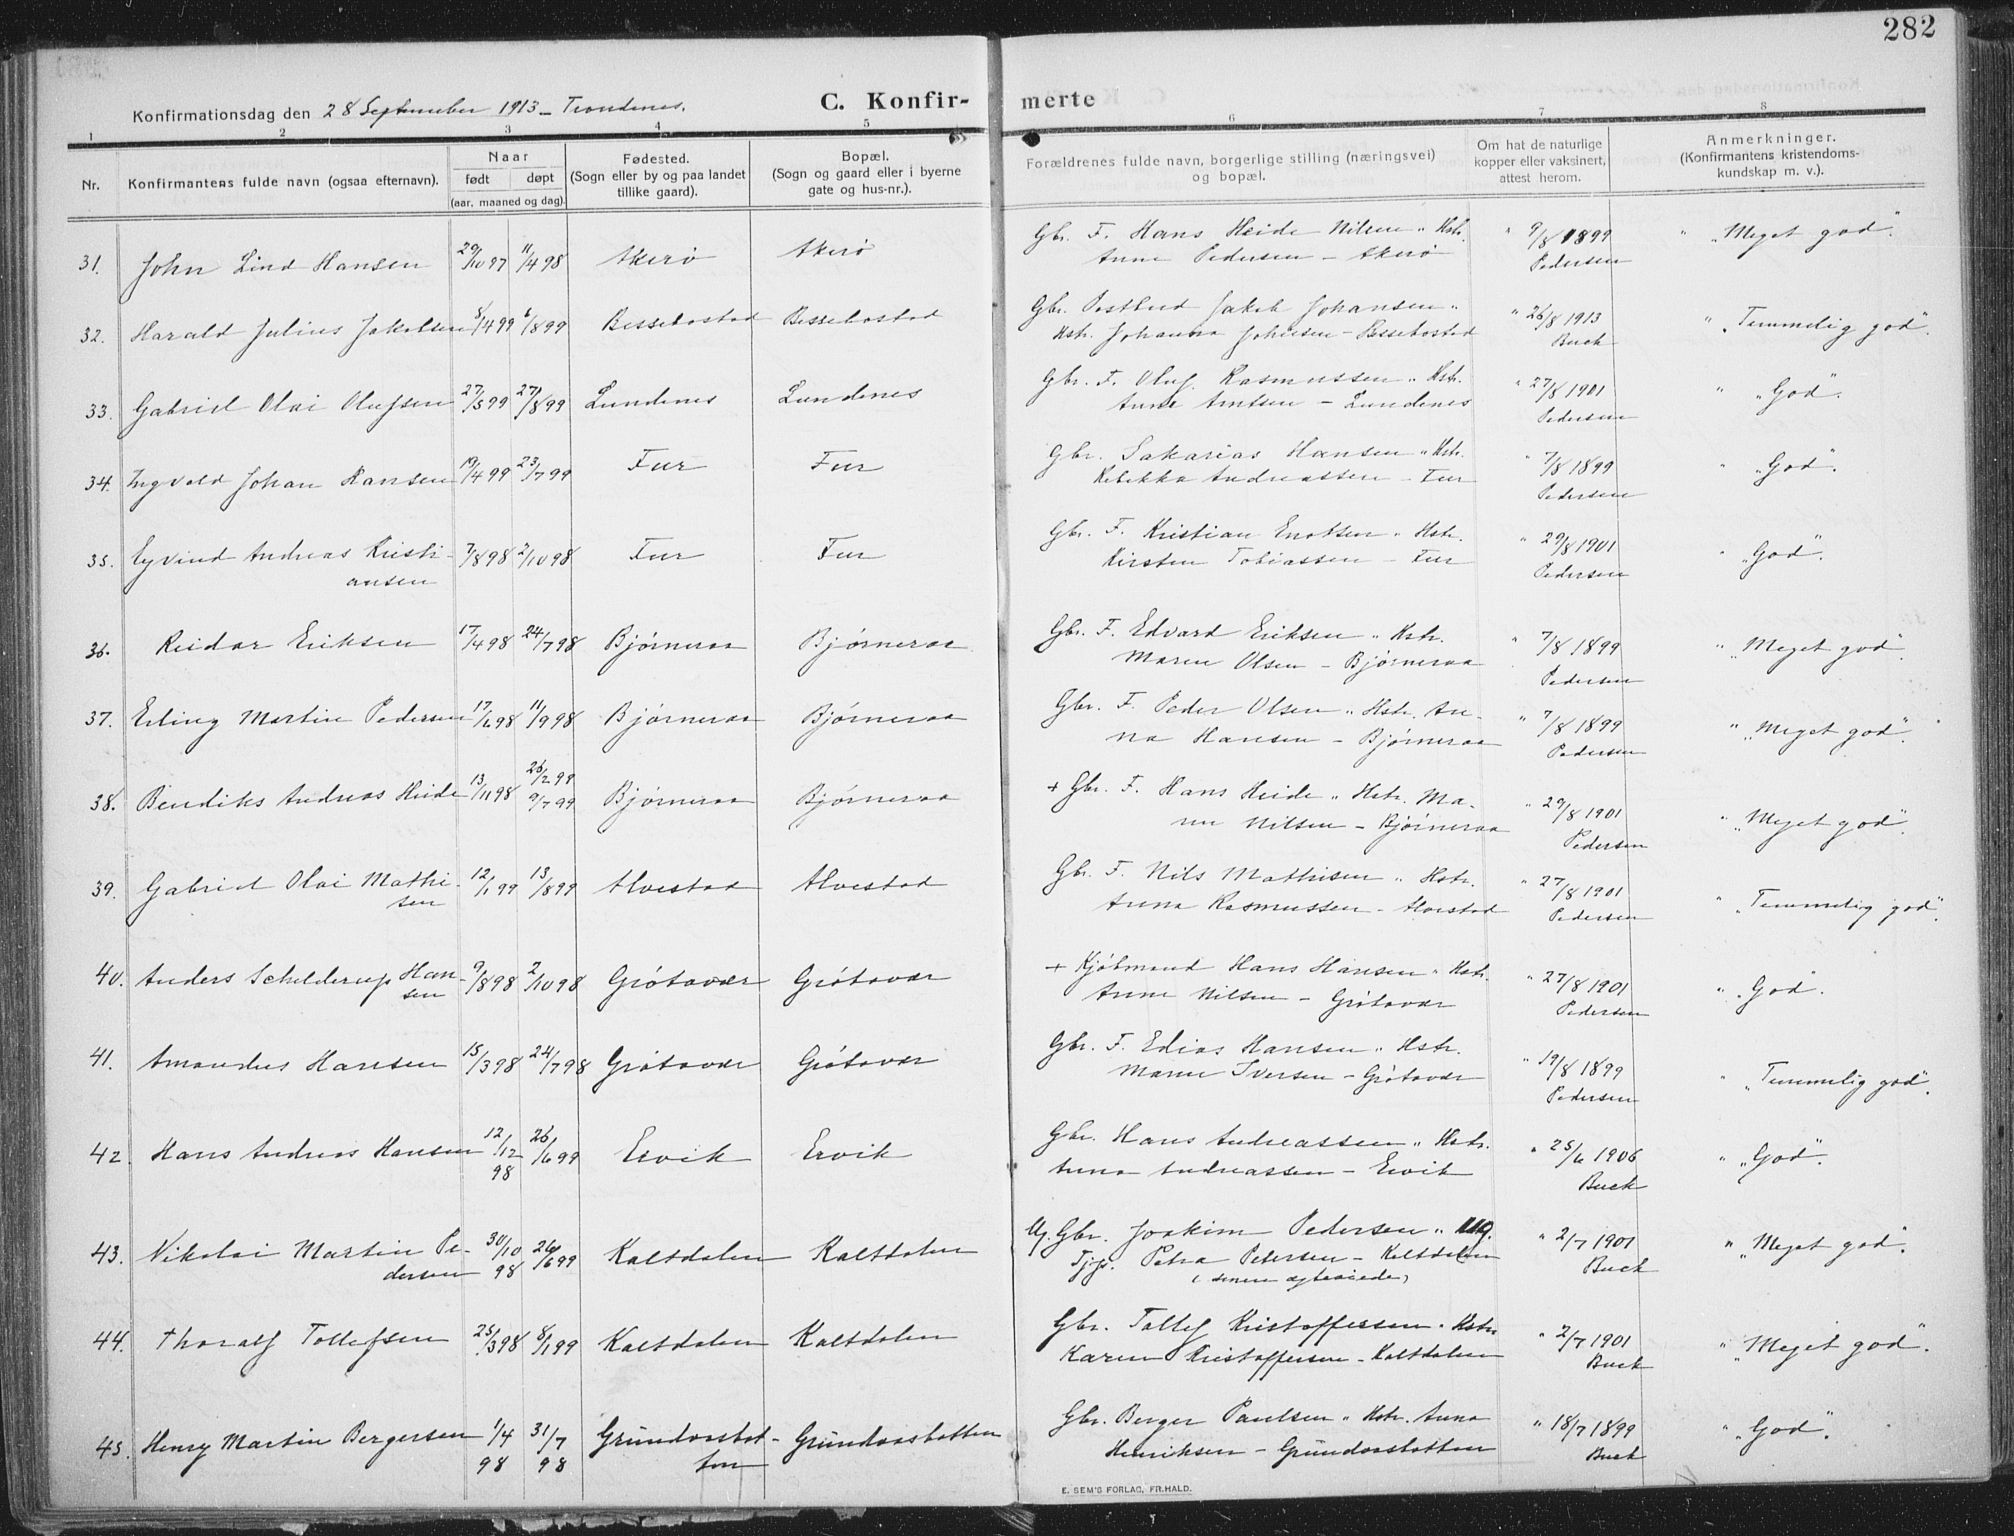 282
Konfirmationsdag den 28 September 1913 - Trondenes.
C. Konfir-
merte
1 2 3 4 5 6 7 8
Nr.
Konfirmantens fulde navn (ogsaa efternavn).
Naar
født døpt
(aar, maaned og dag).
Fødested.
(Sogn eller by og paa landet
tillike gaard).
Bopæl.
(Sogn og gaard eller i byerne
gate og hus-nr.).
Forældrenes fulde navn, borgerlige stilling (næringsvei)
og bopæl.
Om hat de naturlige
kopper eller vaksinert,
attest herom.
Anmerkninger.
(Konfirmantens kristendoms-
kundskap m. v.).
31. John Lind Hansen 29/10 97 11/4 98 Akerø Akerø Gbr. F. Hans Heide Nilsen " Hstr. " 9/8 1899 " "Meget god".
Anne Pedersen - Akerø Pedersen
32. Harald Julius Jakobsen 8/4 99 6/8 99 Bessebostad Bessebostad Gbr. Postbud Jakob Johansen " " 26/8 1913 " "Temmelig god".
Hstr. Johanna Johnsen - Bessebostad Buck
33. Gabriel Olai Olufsen 27/5 99 27/8 99 Lundenes Lundenes Gbr. F. Oluf Rasmussen " Hstr. " 27/8 1901 " "God".
Anne Arntsen - Lundenes Pedersen
34. Ingvald Johan Hansen 19/4 99 23/7 99 Fur Fur Gbr. Sakarias Hansen " Hstr. " 7/8 1899 " "God".
Rebekka Andreassen - Fur Pedersen
35. Eyvind Andreas Kristi- 7/8 98 2/10 98 Fur Fur Gbr. F. Kristian Enoksen " Hstr. " 29/8 1901 " "God".
ansen Kirsten Tobiassen - Fur Pedersen
36. Reidar Eriksen 17/4 98 24/7 98 Bjørneraa Bjørneraa Gbr. F. Edvard Eriksen " Hstr. " 7/8 1899 " "Meget god".
Maren Olsen - Bjørneraa Pedersen
37. Erling Martin Pedersen 17/6 98 11/9 98 Bjørneraa Bjørneraa Gbr. F. Peder Olsen " Hstr. An- " 7/8 1899 " "Meget god".
na Hansen - Bjørneraa Pedersen
38. Bendiks Andreas Heide 13/11 98 26/2 99 Bjørneraa Bjørneraa + Gbr. F. Hans Heide " Hstr. Ma- " 29/8 1901 " "Meget god".
9/7 99 ren Nilsen - Bjørneraa Pedersen
39. Gabriel Olai Mathi- 12/1 99 13/8 99 Alvestad Alvestad Gbr. F. Nils Mathisen " Hstr. " 27/8 1901 " "Temmelig god".
sen Anna Rasmussen - Alvestad Pedersen
40. Anders Schelderup Han- 9/8 98 2/10 98 Grøtavær Grøtavær + Kjøbmand Hans Hansen " Hstr. " 27/8 1901 " "God".
sen Anne Nilsen - Grøtavær Pedersen
41. Amandus Hansen 15/3 98 24/7 98 Grøtavær Grøtavær Gbr. F. Edias Hansen " Hstr. " 19/8 1899 " "Temmelig god".
Maren Iversen - Grøtavær Pedersen
42. Hans Andreas Hansen 12/12 98 26/6 99 Ervik Ervik Gbr. Hans Andreassen " Hstr. " 25/6 1906 " "God".
Anna Andreassen - Ervik Buck
43. Nikolai Martin Pe- 30/10 98 26/6 99 Kaltdalen Kaltdalen Ug. Gbr. Joakim Pedersen " Ug. " 2/7 1901 " "Meget god".
dersen Tjp. Petra Petersen - Kaltdalen Buck
44. Thoralf Tollefsen 25/3 98 8/1 99 Kaltdalen Kaltdalen Gbr. Tollef Kristoffersen " Hstr. " 2/7 1901 " "Meget god".
Karen Kristoffersen - Kaltdalen Buck
45. Henry Martin Bergersen 1/4 98 31/7 98 Grundvasslot- Grundvasslotten Gbr. Berger Paulsen " Hstr. Anna " 18/7 1899 " "God".
ten Henriksen - Grundvasslotten Buck
E. SEM'S FORLAG, FR.HALD.